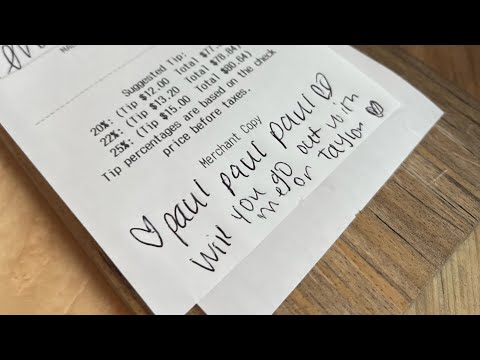 Suggested Tip:
20%: (Tip $12.00 Total $77.
22%: (Tip $13.20 Total $78.84)
25%: (Tip $15.00 Total $80.64)
Tip percentages are based on the check
price before taxes.
Merchant Copy
♡ paul paul paul ♡♡
Will you go out with
me or Taylor ♡